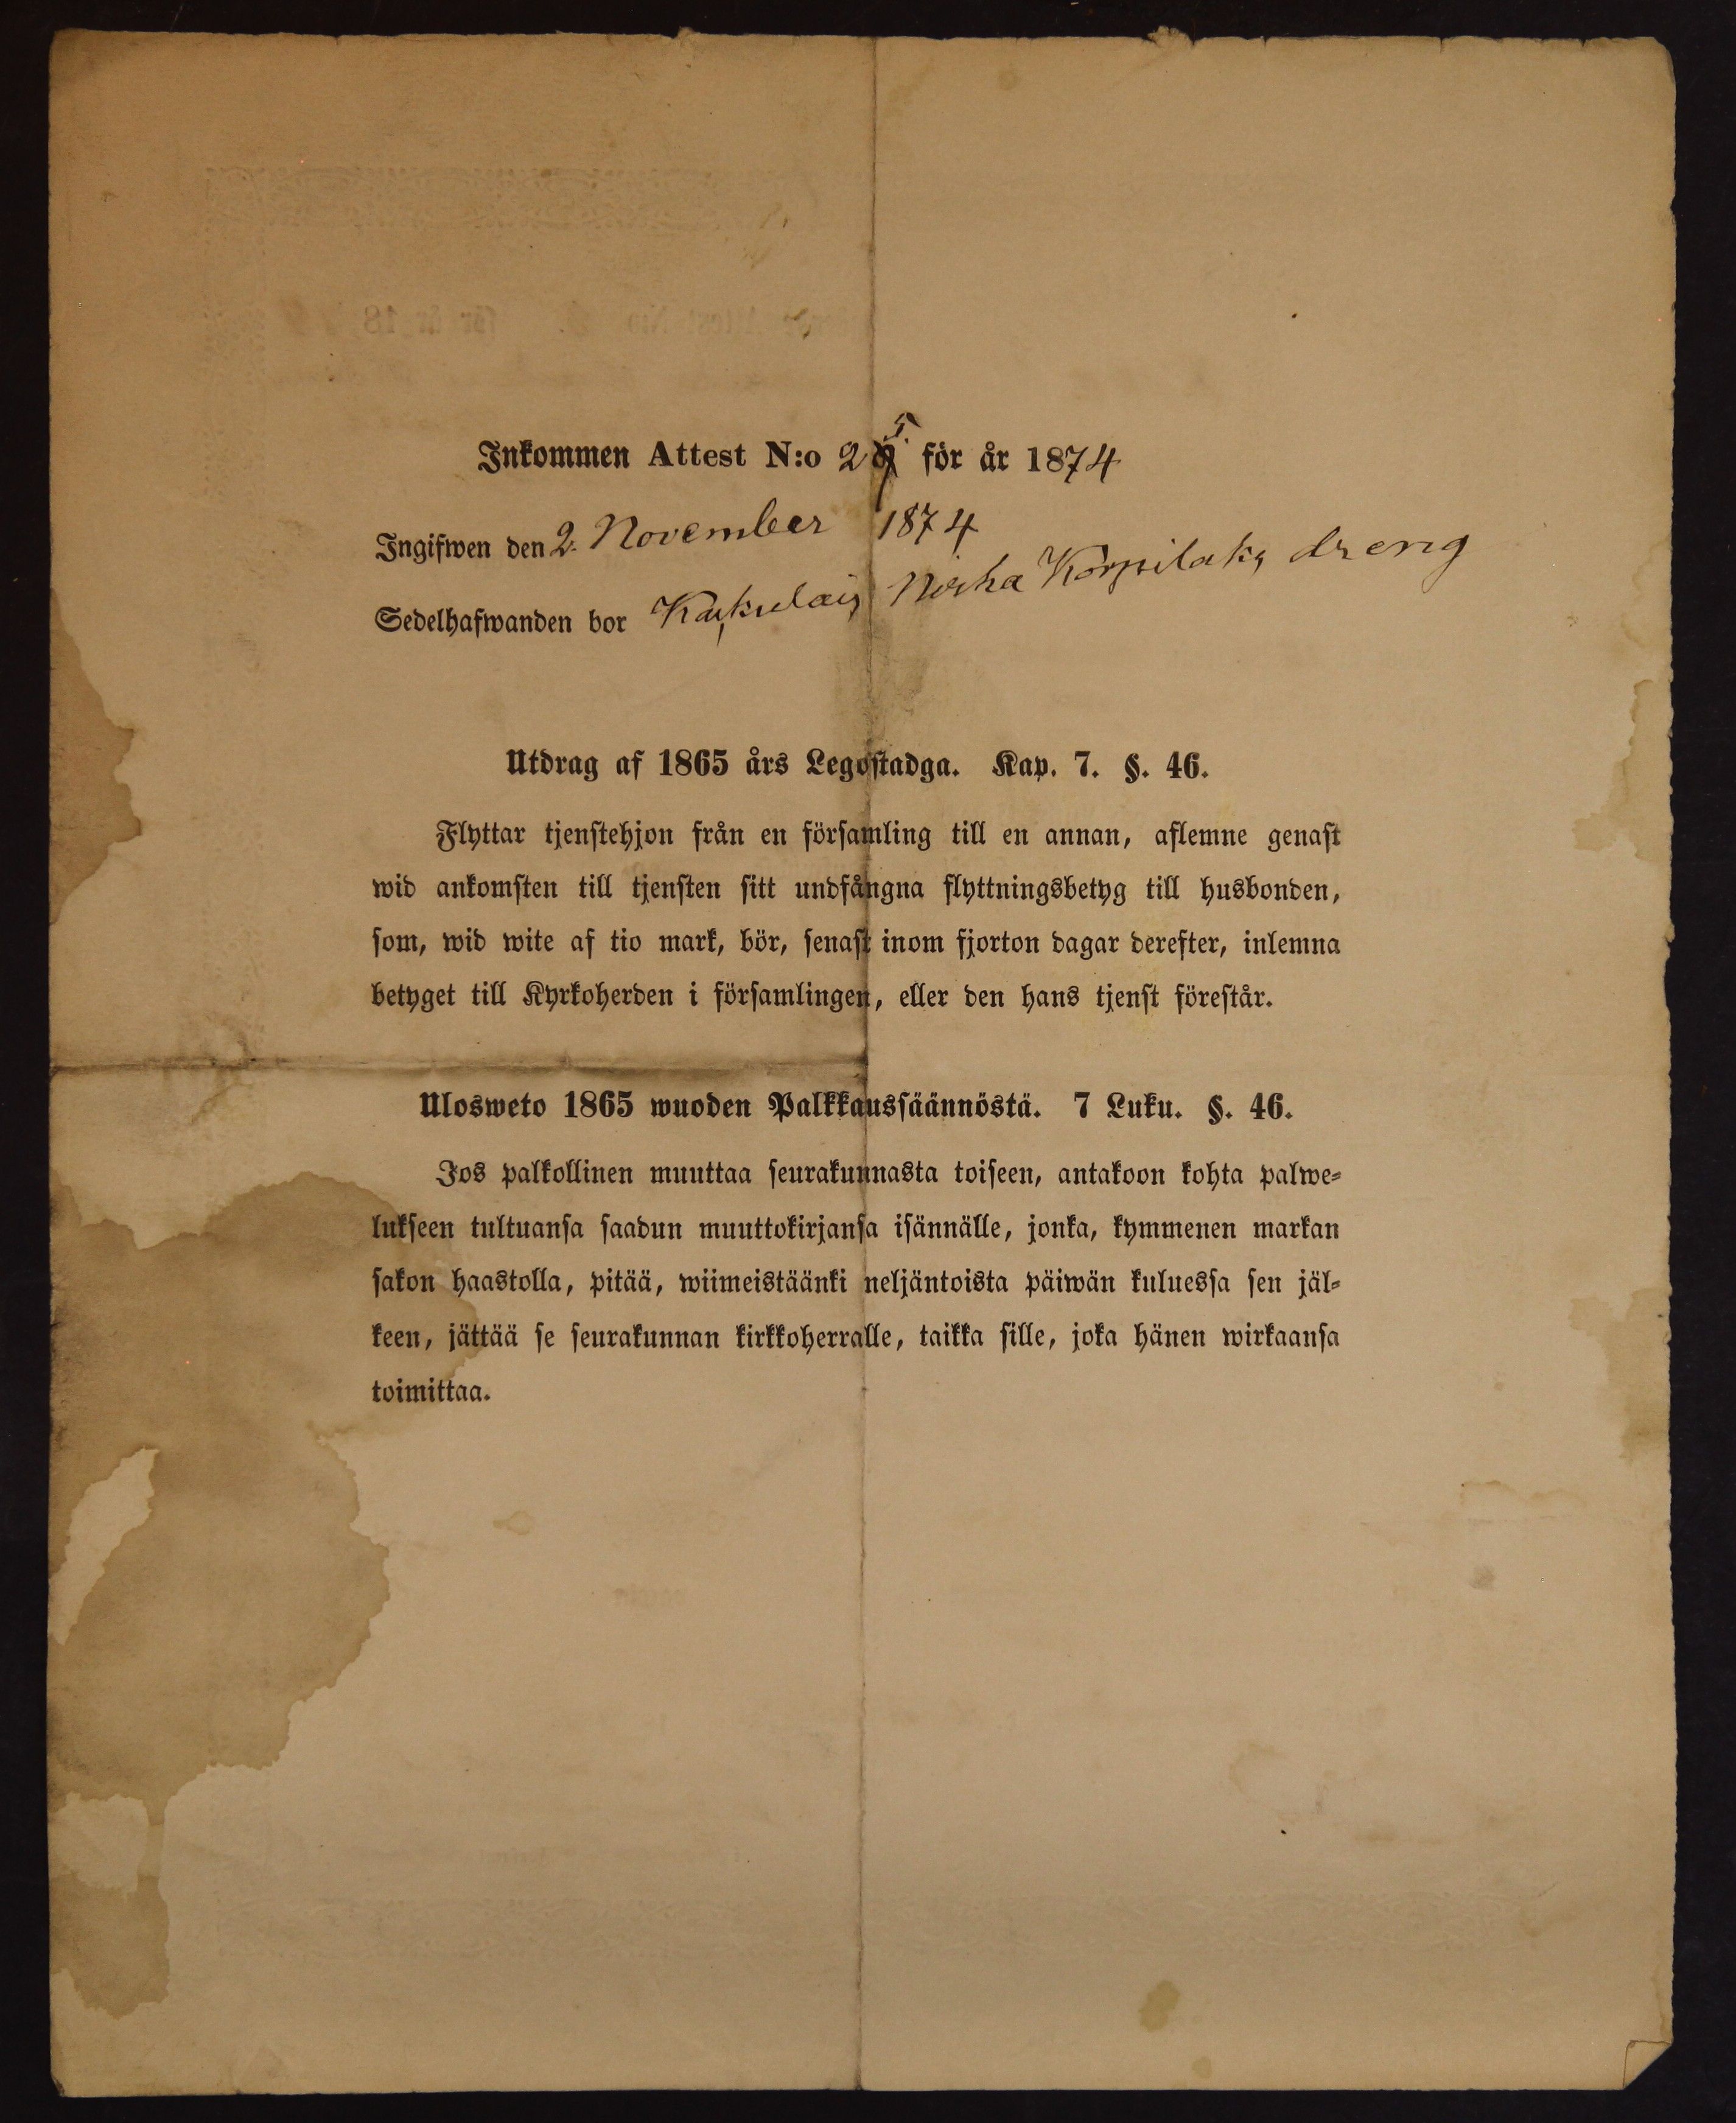 Inkommen Attest N:o 25. för år 1874
Ingifwen den 2. November 1874
Sedelhafwanden bor dreng
Utdrag af 1865 års Legostadga. Kap. 7. §. 46.
Flyttar tjenstehjon från en församling till en annan, aflemne genast
wid ankomsten till tjensten sitt undfångna flyttningsbetyg till husbonden,
som, wid wite af tio mark, bör, senast inom fjorton dagar derefter, inlemna
betyget till Kyrkoherden i församlingen, eller den hans tjenst förestår.
Ulosweto 1865 wuoden Palkkaussäännöstä. 7 Luku. §. 46.
Jos palkollinen muuttaa seurakunnasta toiseen, antakoon kohta palwe-
lukseen tultuansa saadun muuttokirjansa isännälle, jonka, kymmenen markan
sakon haastolla, pitää, wiimeistäänki neljäntoista päiwän kuluessa sen jäl-
keen, jättää se seurakunnan kirkkoherralle, taikka sille, joka hänen wirkaansa
toimittaa.